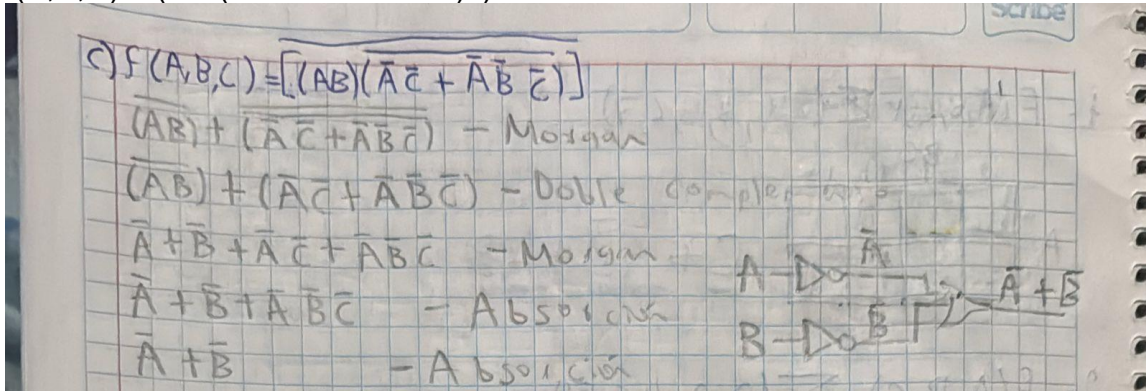 Scribe
c) f(A,B,C) = \overline{[(AB)(\overline{A̅ C̅ + A̅ B̅ C̅})]}
\overline{(AB)} + \overline{\overline{(A̅ C̅ + A̅ B̅ C̅)}} - Morgan
\overline{(AB)} + (A̅ C̅ + A̅ B̅ C̅) - Doble complemento
A̅ + B̅ + A̅ C̅ + A̅ B̅ C̅ - Morgan
A̅ + B̅ + A̅ B̅ C̅ - Absorción
A̅ + B̅ - Absorción
A A̅ A̅ + B̅
B B̅